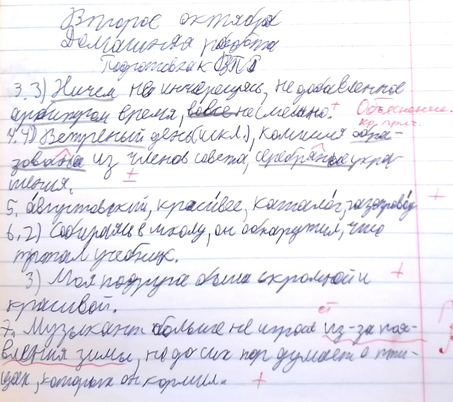 Второе октября
Домашняя работа
Подготовка к ВПР
3. 3) Ничем не интересуясь, не добавленное
арбитром время, вовсе не смешно. + Объяснение
4. 4) Ветреный день (искл.), комиссия обра-
зована из членов совета, серебряные укра-
шения. ±
5. Августовский, красивее, каталог, +
6. 2) Собираясь в школу, он обнаружил, что
учебник.
3) Моя подруга была скромной и +
красивой.
7. Музыкант больше не играл из-за поя-
вления зимы, но до сих пор думает о пти-
цах, которых он кормил. +